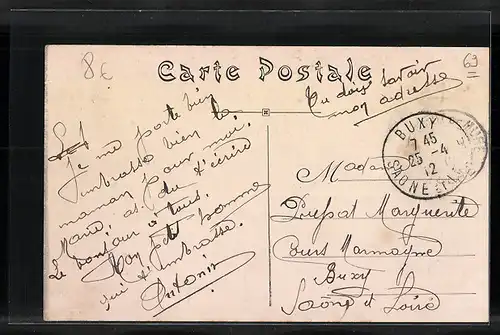 8€
63
Carte Postale
Tu dois savoir
mon adresse
Je me porte bien
embrasse bien la
maman pour moi,
t'écrire
Le bonjour à tous.
Ton homme
qui t'embrasse.
Antonin
BUXY
7 45
25 - 4
12
SAONE ET L
Madame
Marguerite
Cours Marmagne
Buxy
Saône et Loire